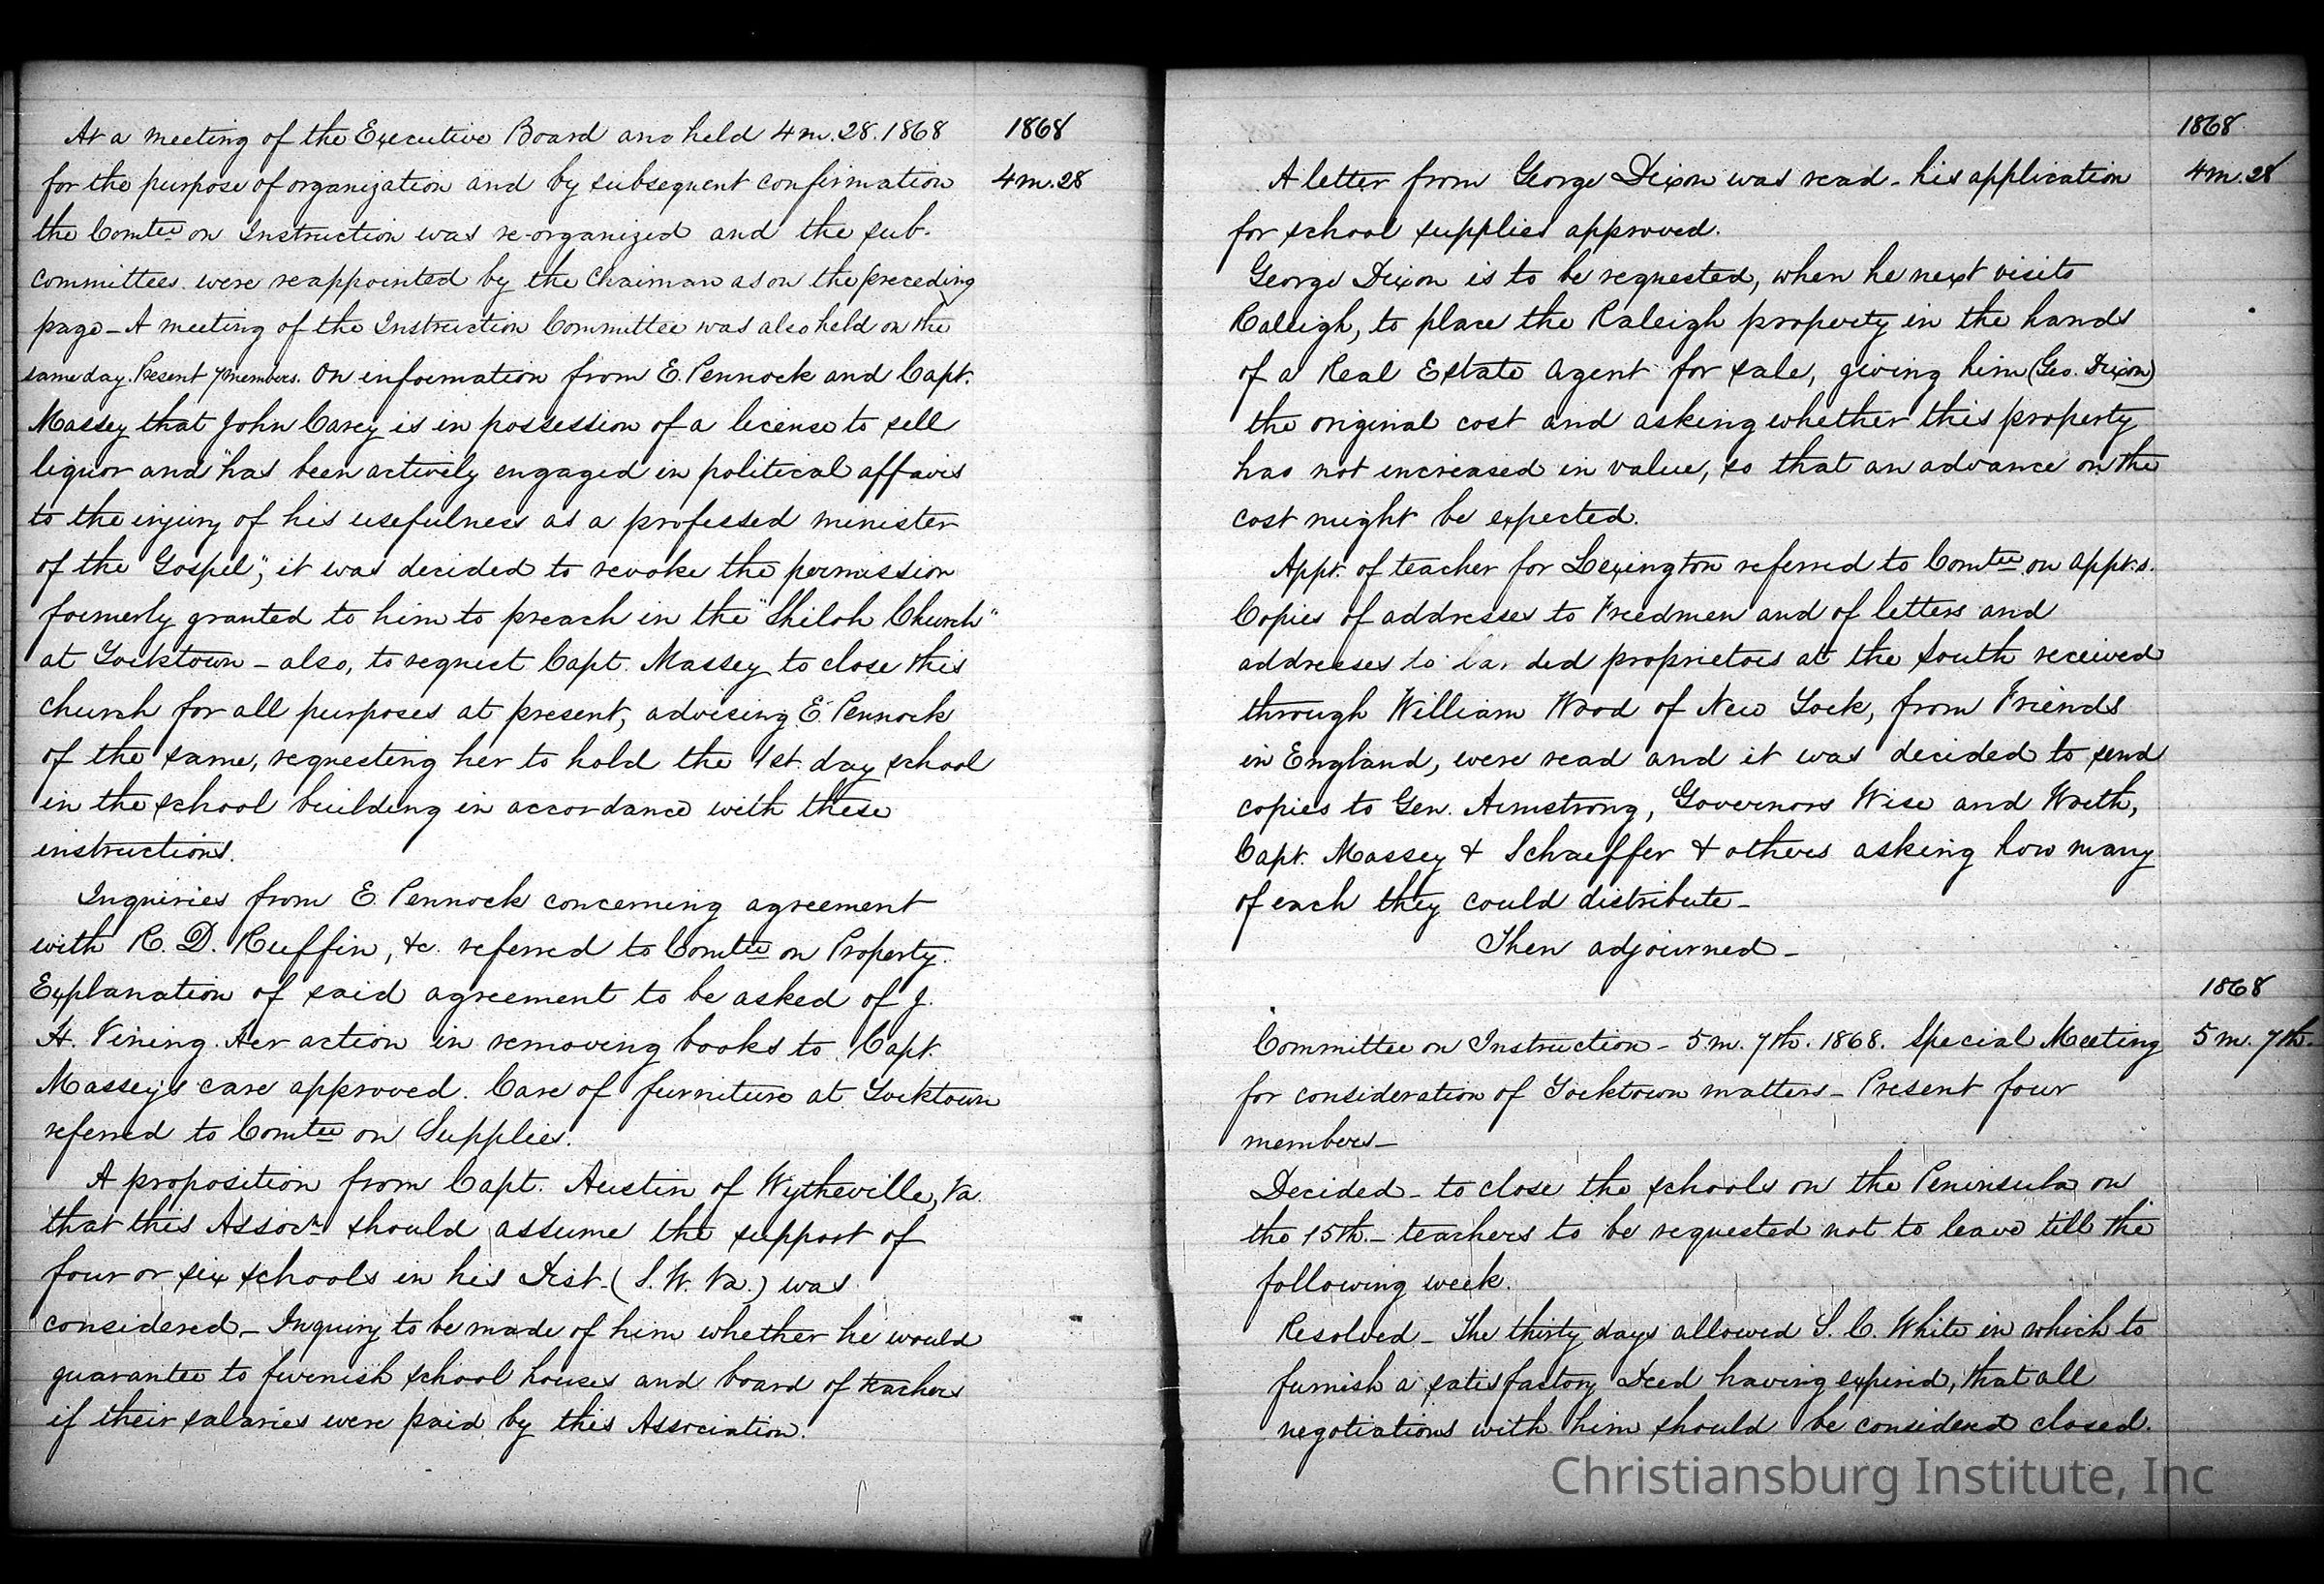 At a meeting of the Executive Board and held 4m.28.1868
1868
for the purpose of organization and by subsequent confirmation
4m.28
the Comtee on Instruction was re-organized and the sub-
committees were reappointed by the Chaiman as on the preceding
page - A meeting of the Instruction Committee was also held on the
same day. Present 7 members. On information from E. Pennock and Capt.
Massey that John Carey is in possession of a license to sell
liquor and "has been actively engaged in political affairs
to the injury of his usefulness as a professed minister
of the Gospel", it was decided to revoke the permission
formerly granted to him to preach in the "Shiloh Church"
at Yorktown - also, to request Capt. Massey to close this
church for all purposes at present, advising E. Pennock
of the same, requesting her to hold the 1st. day school
in the school building in accordance with these
instructions.
Inquiries from E. Pennock concerning agreement
with R. D. Ruffin, &c. referred to Comtee on Property.
Explanation of said agreement to be asked of J.
H. Vining. Her action in removing books to Capt.
Massey's care approved. Care of furniture at Yorktown
referred to Comtee on Supplies.
A proposition from Capt. Austin of Wytheville, Va.
that this Assocn should assume the support of
four or six schools in his Dist. (S. W. Va.) was
considered - Inquiry to be made of him whether he would
guarantee to furnish school houses and board of teachers
if their salaries were paid by this Association.
1868
A letter from George Dixon was read - his application
4m.28
for school supplies approved.
George Dixon is to be requested, when he next visits
Raleigh, to place the Raleigh property in the hands
of a Real Estate Agent for sale, giving him (Geo. Dixon)
the original cost and asking whether this property
has not increased in value, so that an advance on the
cost might be expected.
Appt. of teacher for Lexington referred to Comtee on appt.s.
Copies of addresses to Freedmen and of letters and
addresses to landed proprietors at the South received
through William Wood of New York, from Friends
in England, were read and it was decided to send
copies to Gen. Armstrong, Governors Wise and Worth,
Capt. Massey & Schaeffer & others asking how many
of each they could distribute -
Then adjourned -
1868
Committee on Instruction - 5.m. 7th. 1868. Special Meeting
5m. 7th.
for consideration of Yorktown matters - Present four
members -
Decided - to close the schools on the Peninsula on
the 15th. - teachers to be requested not to leave till the
following week.
Resolved - The thirty days allowed S. C. White in which to
furnish a satisfactory Deed having expired, that all
negotiations with him should be considered closed.
Christiansburg Institute, Inc